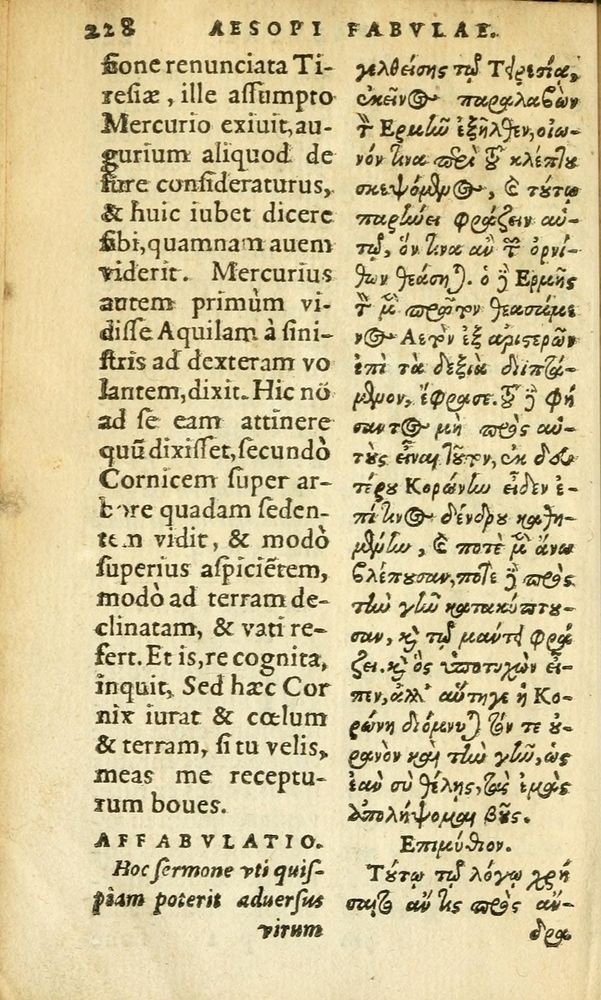 228 AESOPI FABVLAE.
ſione renunciata Ti-
reſiæ, ille aſſumpto
Mercurio exiuit, au-
gurium aliquod de
fure conſideraturus,
& huic iubet dicere
ſibi, quamnam auem
viderit. Mercurius
autem primùm vi-
diſſe Aquilam à ſini-
ſtris ad dexteram vo
lantem, dixit. Hic nõ
ad ſe eam attinere
quũ dixiſſet, ſecundò
Cornicem ſuper ar-
bore quadam ſeden-
tem vidit, & modò
ſuperius aſpiciẽtem,
modò ad terram de-
clinatam, & vati re-
fert. Et is, re cognita,
inquit, Sed hæc Cor
nix iurat & cœlum
& terram, ſi tu velis,
meas me receptu-
rum boues.
AFFABVLATIO.
Hoc ſermone vti quiſ-
piam poterit aduerſus
virum
γελθείσης τῷ Τειρεσίᾳ,
ἐκεῖνος παραλαβὼν
τὸν Ἑρμῆν ἐξῆλθεν, οἰω-
νόν τινα περὶ τοῦ κλέπτου
σκεψόμενος, καὶ τούτῳ
παρῄνει φράζειν αὐ-
τῷ, ὅν τινα ἂν τῶν ὀρνί-
θων θεάσηται. ὁ δὲ Ἑρμῆς
τὸ μὲν πρῶτον θεασάμε
νος Ἀετὸν ἐξ ἀριστερῶν
ἐπὶ τὰ δεξιὰ διιπτά-
μενον, ἔφρασε. τοῦ δὲ φή
σαντος μὴ πρὸς αὐ-
τοὺς εἶναι τοῦτον, ἐκ δευ
τέρου Κορώνην εἶδεν ἐ-
πί τινος δένδρου καθη-
μένην, καὶ ποτὲ μὲν ἄνω
βλέπουσαν, ποτὲ δὲ πρὸς
τὴν γῆν κατακύπτου-
σαν, καὶ τῷ μάντει φρά
ζει. καὶ ὃς ὑποτυχὼν εἶ-
πεν, ἀλλ' αὕτηγε ἡ Κο-
ρώνη διόμνυται τόν τε οὐ-
ρανὸν καὶ τὴν γῆν, ὡς
ἐὰν σὺ θέλῃς, τὰς ἐμὰς
ἀπολήψομαι βοῦς.
Ἐπιμύθιον.
Τούτῳ τῷ λόγῳ χρή
σαιτο ἄν τις πρὸς ἄν-
δρα